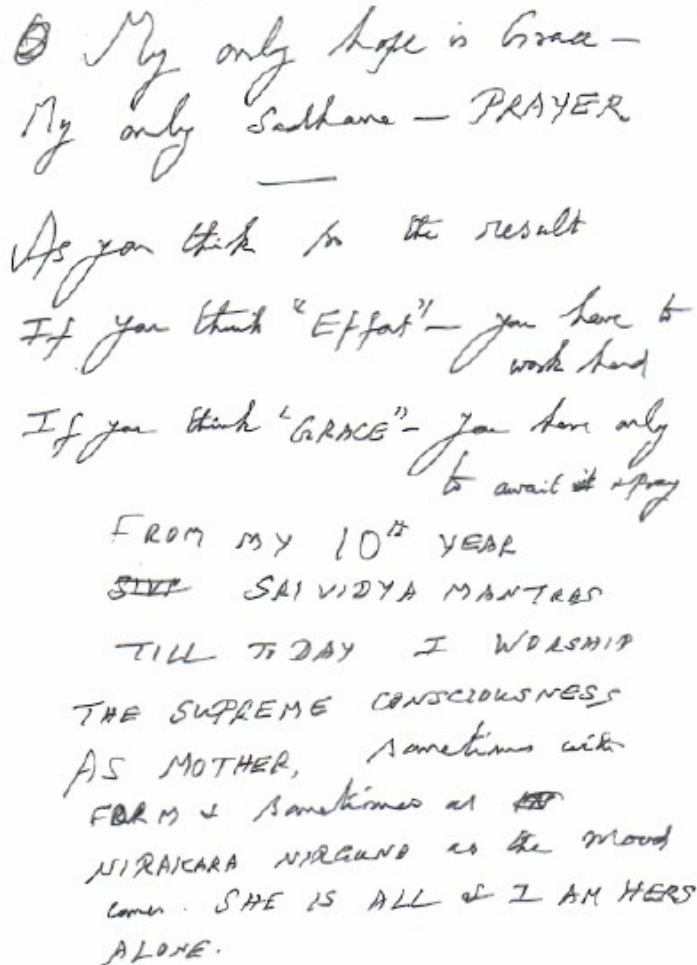 My only hope is Grace —
My only Sadhana — PRAYER
As you think so the result
If you think "Effort" — you have to
work hard
If you think "GRACE" — you have only
to await it & Pray
FROM MY 10th YEAR
SRI VIDYA MANTRAS
TILL TODAY I WORSHIP
THE SUPREME CONSCIOUSNESS
AS MOTHER, sometimes with
FORM & sometimes as
NIRAKARA NIRGUNA as the mood
comes. SHE IS ALL & I AM HERS
ALONE.